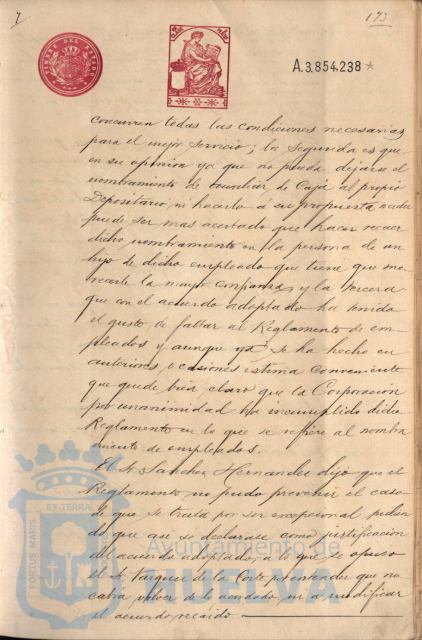 7
193
TIMBRE DEL ESTADO
A.3.854.238
concurren todas las condiciones necesarias
para el mejor servicio; la segunda es que
en su opinion ya que no pueda dejarse el
nombramiento de auxiliar de Caja al propio
Depositario, ni hacerlo á su propuesta
puede ser mas acertado que hacer recaer
dicho nombramiento en la persona de un
hijo de dicho empleado que tiene que me-
recerle la mayor confianza, y la tercera
que en el acuerdo adoptado ha tenido
el gusto de faltar al Reglamento de em-
pleados y aunque ya se ha hecho en
anteriores ocasiones estima conveniente
que quede bien claro que la Corporación
por unanimidad ha incumplido dicho
Reglamento en lo que se refiere al nombra
miento de empleados.
El Sr. Sanchez Hernandez dijo que el
Reglamento no pudo prevenir el caso
de que se trata por ser excepcional pidien
do que que se declarase como justificacion
del acuerdo adoptado, á lo que se opuso
el Sr. Vazquez de la Corte por entender que no
cabia volver de lo acordado, ni á modificar
el acuerdo recaido
PORTUS MARIS
ET TERRÆ
Ayuntamiento de
HUELVA